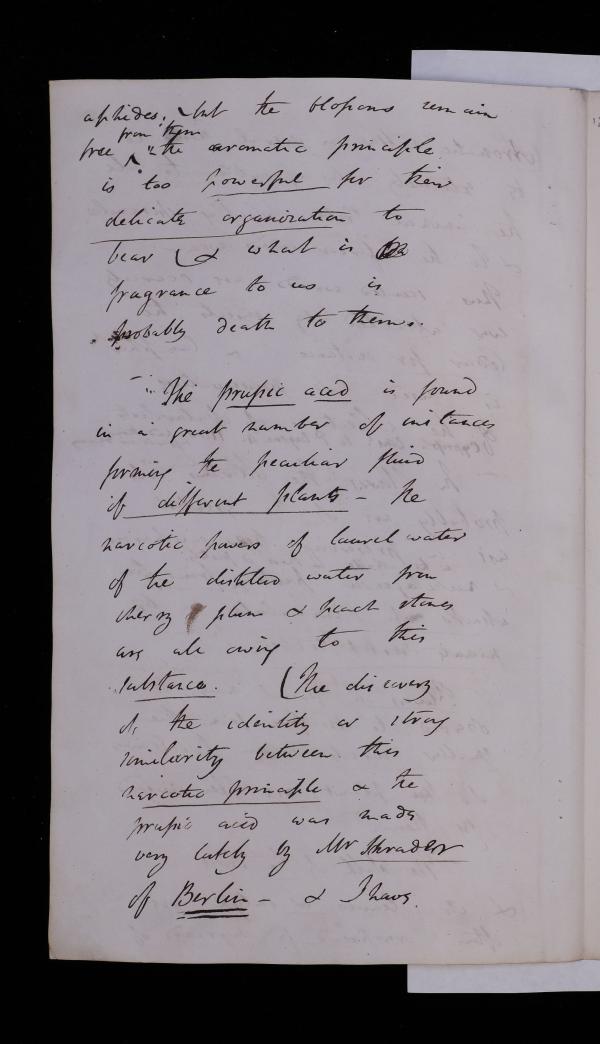 aphides; but the blossoms remain
from them
free the aromatic principle
is too powerful for their
delicate organization to
bear & what is
fragrance to us is
probably death to them.
The prussic acid is found
in a great number of instances
forming the peculiar fluid
of different plants - The
narcotic powers of laurel water
of the distilled water from
cherry plum & peach stones
are all owing to this
substance. (The discovery
of the identity or strong
similarity between this
narcotic principle & the
prussic acid was made
very lately by Mr Shrader
of Berlin - & I have